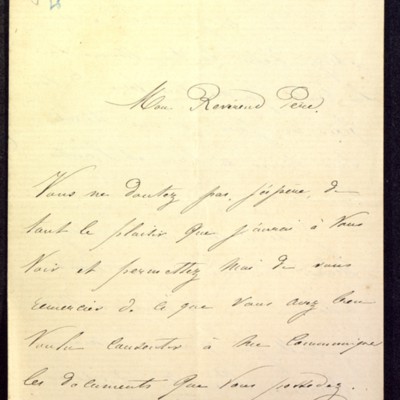 Mon Révérend Père,
Vous ne doutez pas, j'espère, de
tout le plaisir que j'aurai à vous
voir et permettez moi de vous
remercier de ce que vous avez bien
voulu consentir à me communiquer
les documents que vous possedez.